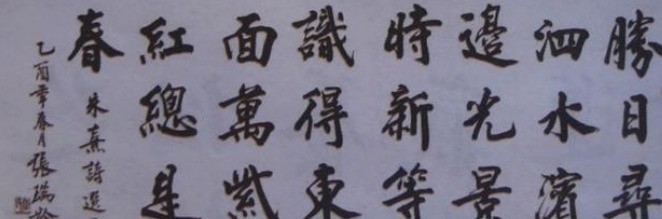 勝日尋
泗水濱
邊光景
時新等
識得東
面萬紫
紅總是
春
朱熹詩選
乙酉年春月張瑞